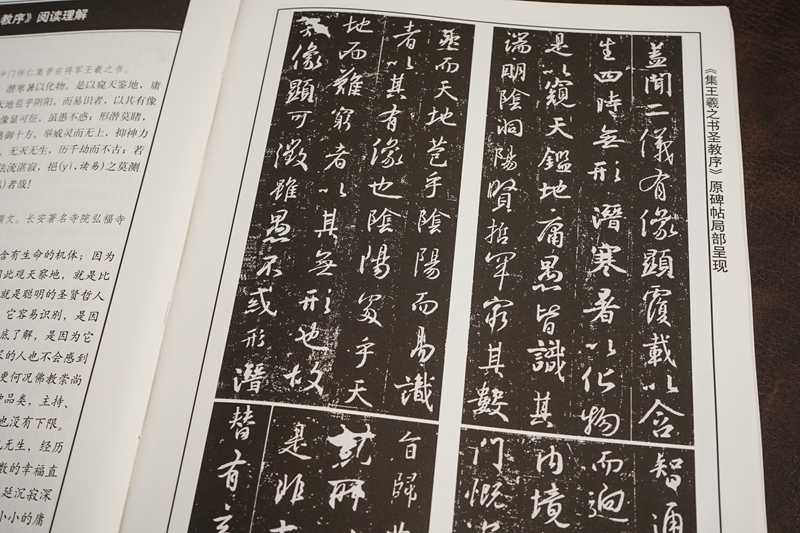 教序》阅读理解
沙门怀仁集晋右将军王羲之书。
潜寒暑以化物。是以窥天鉴地,庸
天地苞乎阴阳,而易识者,以其有像
像显可征,虽愚不惑;形潜莫睹,
御十方。举威灵而无上,抑神力
无灭无生,历千劫而不古;若
法流湛寂,挹(yì,读易)之莫测
者哉!
撰文。长安著名寺院弘福寺
含有生命的机体;因为
因此观天察地,就是比
就是聪明的圣贤哲人
它容易识别,是因
底了解,是因为它
的人也不会感到
更何况佛教崇尚
种品类,主持、
也没有下限。
无生,经历
数的幸福直
延沉寂深
小小的庸
《集王羲之书圣教序》原碑帖局部呈现
蓋聞二儀有像顯覆載以含
生四時無形潛寒暑以化物
是以窺天鑑地庸愚皆識其
端明陰洞陽賢哲罕窮其數
然而天地苞乎陰陽而易識
者以其有像也陰陽處乎天
地而難窮者以其無形也故
像顯可徵雖愚不或形潛
智通
而迥
内境
門慨
旨歸
就
是非
替有